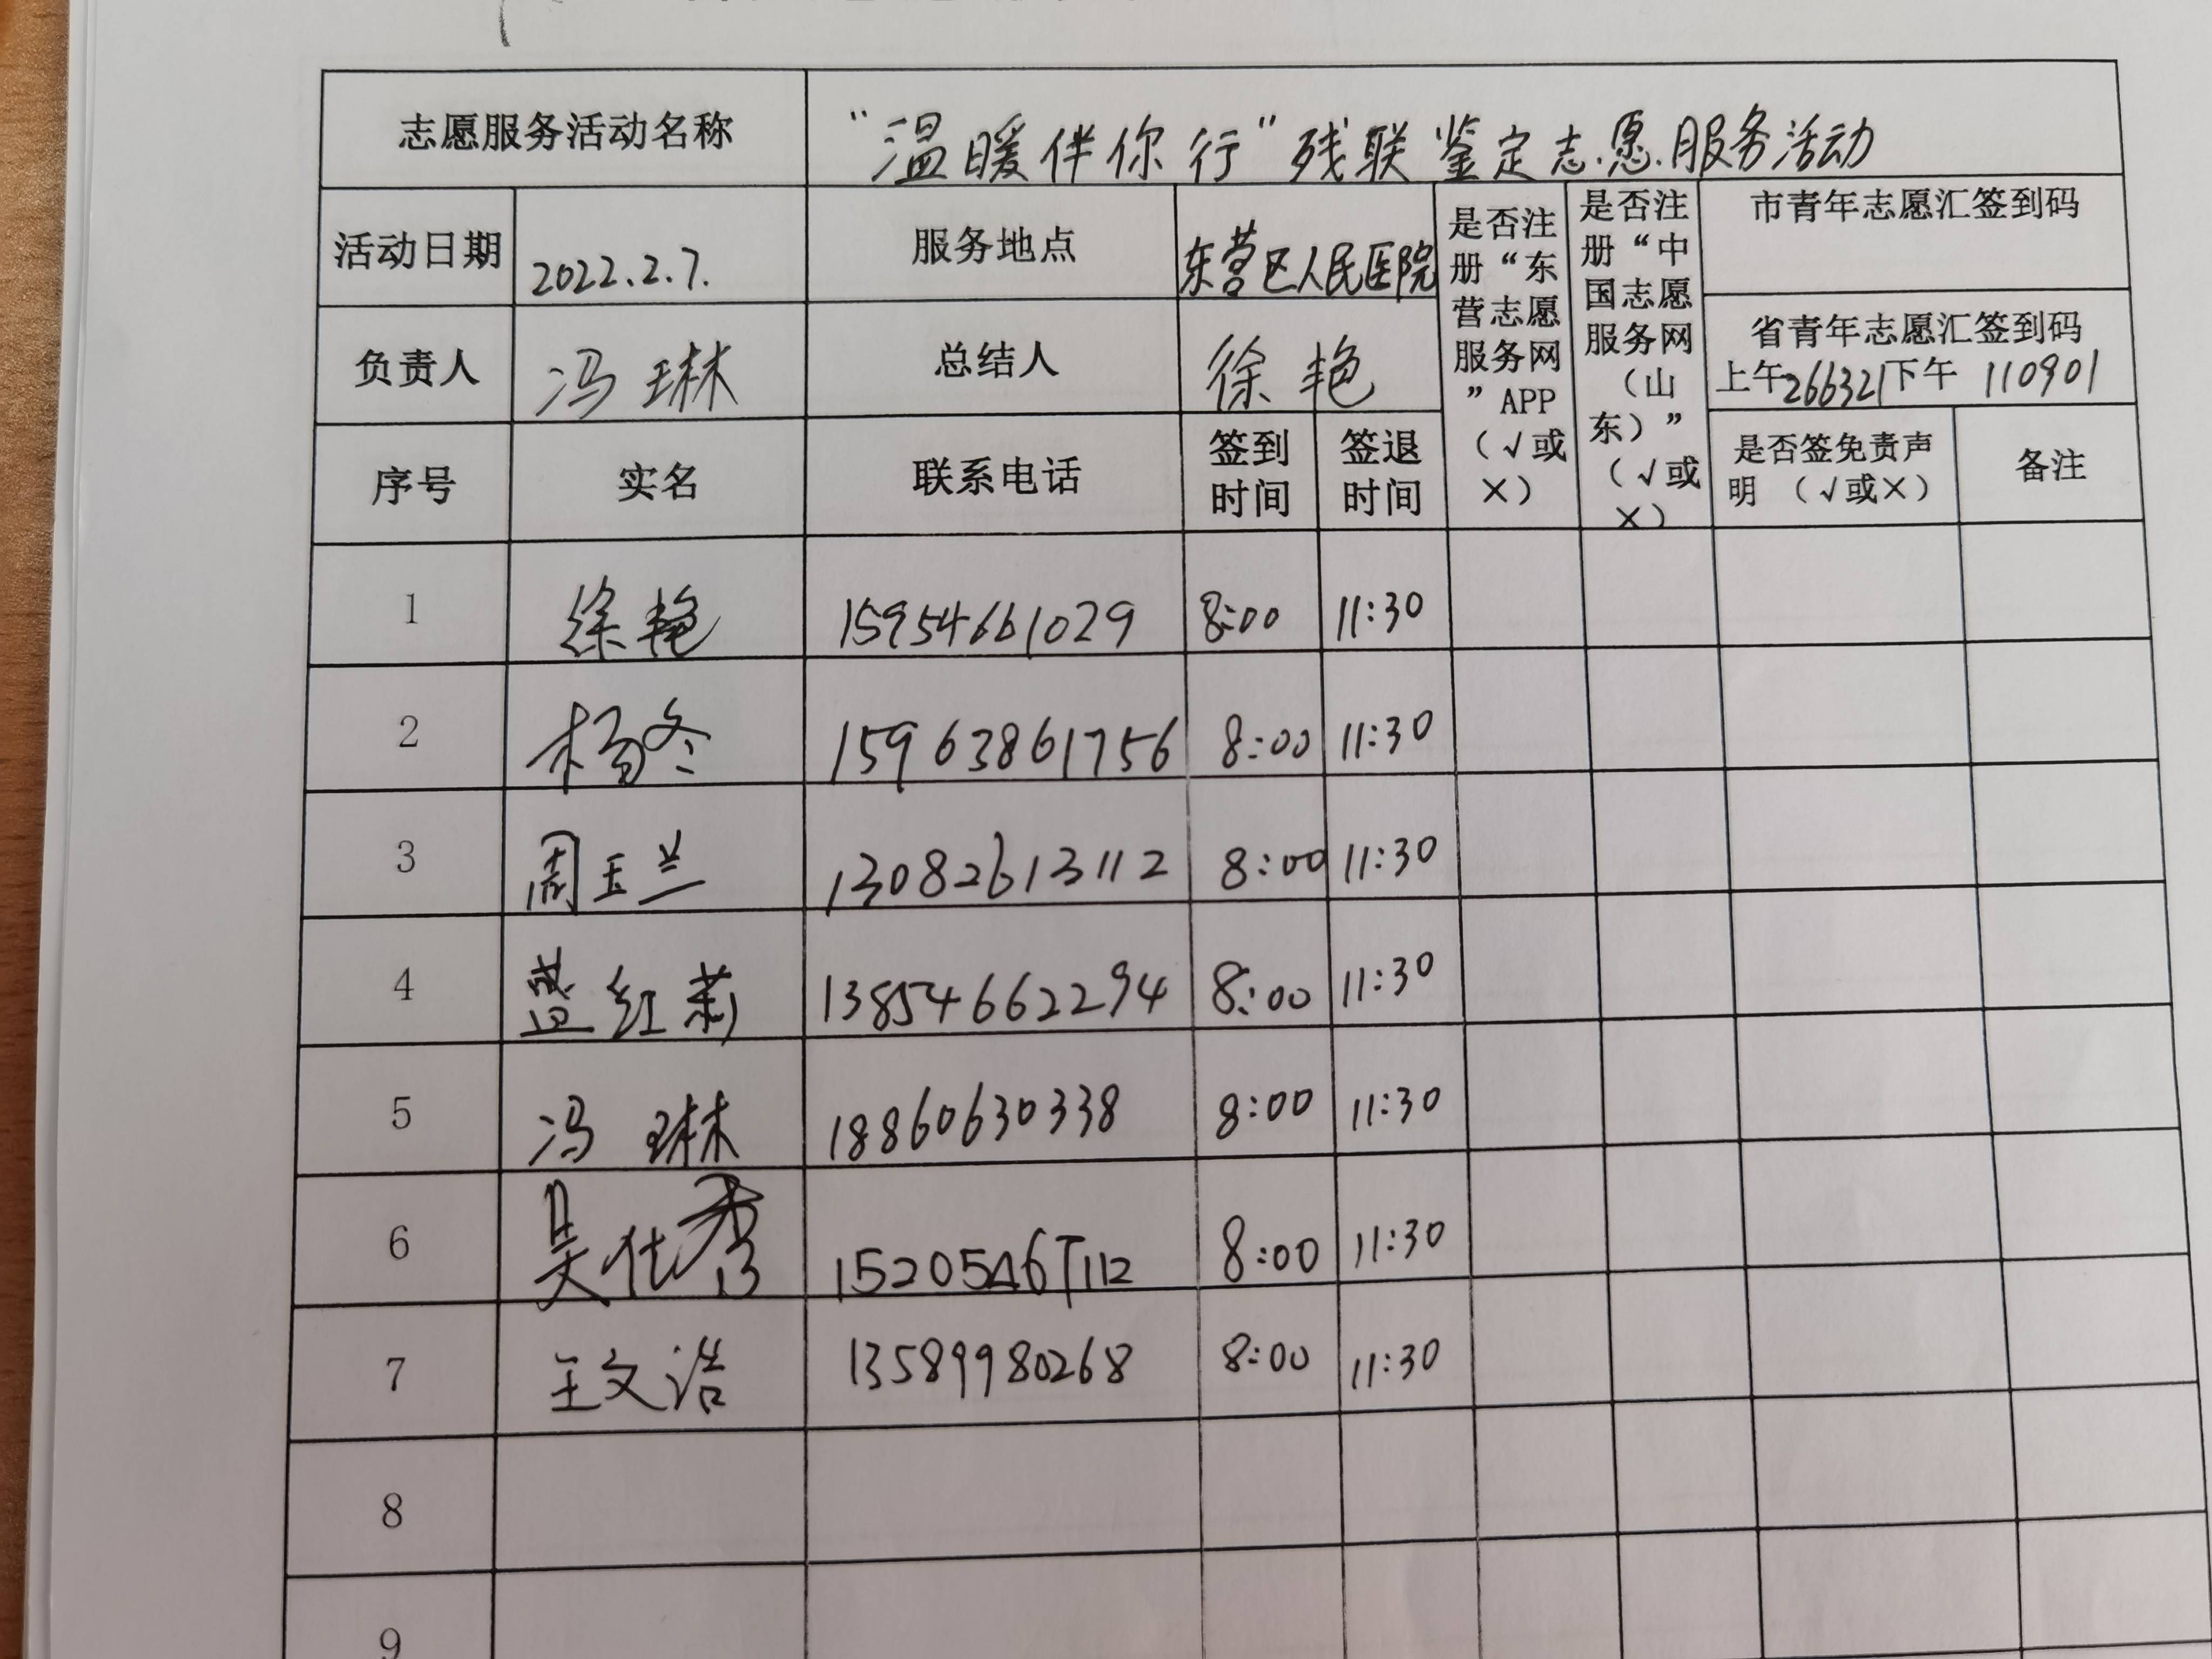 志愿服务活动名称 “温暖伴你行”残联鉴定志愿服务活动
活动日期 2022.2.7. 服务地点 东营区人民医院 是否注册“东营志愿服务网”APP（√或×） 是否注册“中国志愿服务网（山东）”（√或×） 市青年志愿汇签到码
负责人 冯琳 总结人 徐艳 省青年志愿汇签到码
上午266321下午 110901
序号 实名 联系电话 签到时间 签退时间 是否签免责声明 （√或×） 备注
1 徐艳 15954661029 8:00 11:30
2 杨冬 15963861756 8:00 11:30
3 周玉兰 13082613112 8:00 11:30
4 红莉 13854662294 8:00 11:30
5 冯琳 18860630338 8:00 11:30
6 吴仕秀 15205467112 8:00 11:30
7 王文浩 13589980268 8:00 11:30
8
9